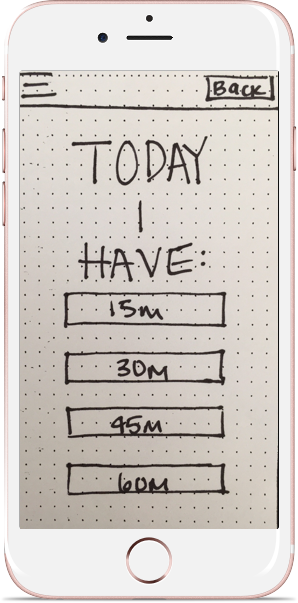 Back
TODAY
I
HAVE:
15m
30M
45M
60M